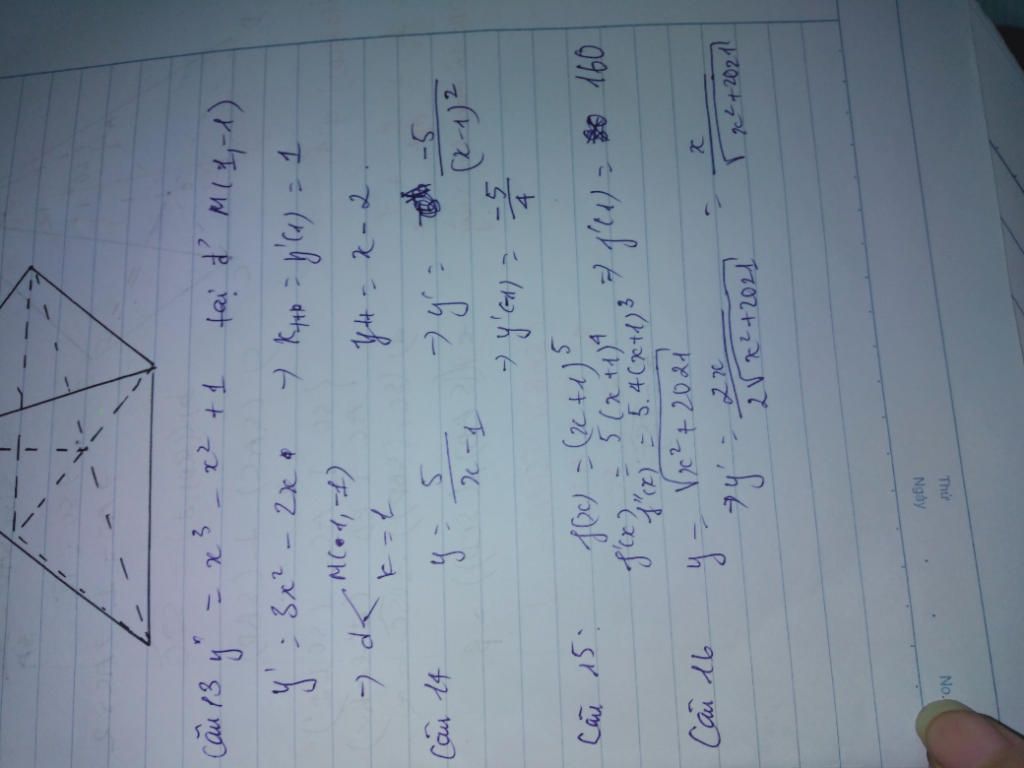 Câu 13 y = x³ - x² + 1 tại đ' M(1,-1)
y' = 3x² - 2x → kHD = y'(1) = 1
→ d < M(1,-1)
k = 1
yH = x - 2.
Câu 14 y = 5/(x-1) → y' = -5/(x-1)²
→ y'(-1) = -5/4
Câu 15: f(x) = (x+1)⁵
f'(x) = 5(x+1)⁴
f''(x) = 5.4(x+1)³ ⇒ f'(1) = 160
Câu 16 y = √(x²+2021)
→ y' = 2x/(2√(x²+2021)) = x/√(x²+2021)
Thứ
Ngày
No.